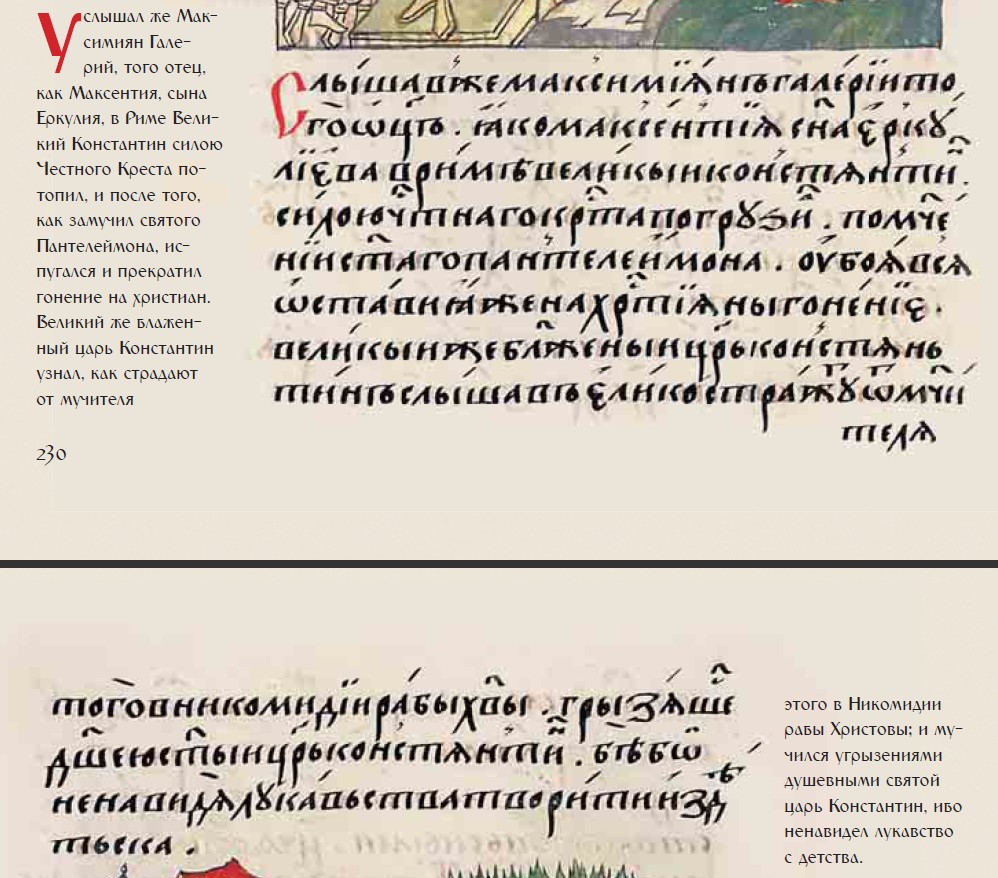 Услышал же Мак-
симиян Гале-
рий, того отец,
как Максентия, сына
Еркулия, в Риме Вели-
кий Константин силою
Честного Креста по-
топил, и после того,
как замучил святого
Пантелеймона, ис-
пугался и прекратил
гонение на христиан.
Великий же блажен-
ный царь Константин
узнал, как страдают
от мучителя
230
Слы́шавже маѯенмїѧ́нъ галерїи то
го ѡц҃ъ . ꙗко максентїѧ сн҃а є҆ркꙋ́
лїє҆ва в ри́мѣ вели́кыи констѧнти́н .
си́лою чⷭ҇тнаго крⷭ҇та погрꙋзи́ . по мч҃е
нїи ст҃аго пантеле́имона . оубоѧ́всѧ
ѡставлѧ́ѧже на хрⷭ҇тїѧны гоне́нїє .
вели́кыи же бл҃же́ныи цр҃ь констѧнь
ти́нъ слы́шавъ є҆ли́ко стражꙋт ѿ мч҃и
телѧ
тогⷪ҇ в никоми́дїи рабы́ хв҃ы . грызѧ́ше
дш҃ею ст҃ыи цр҃ь констѧнти́н . бѣ бо
ненави́дѧ лꙋка́вьства твори́ти и҆з дѣ
тьска .
этого в Никомидии
рабы Христовы; и му-
чился угрызениями
душевными святой
царь Константин, ибо
ненавидел лукавство
с детства.